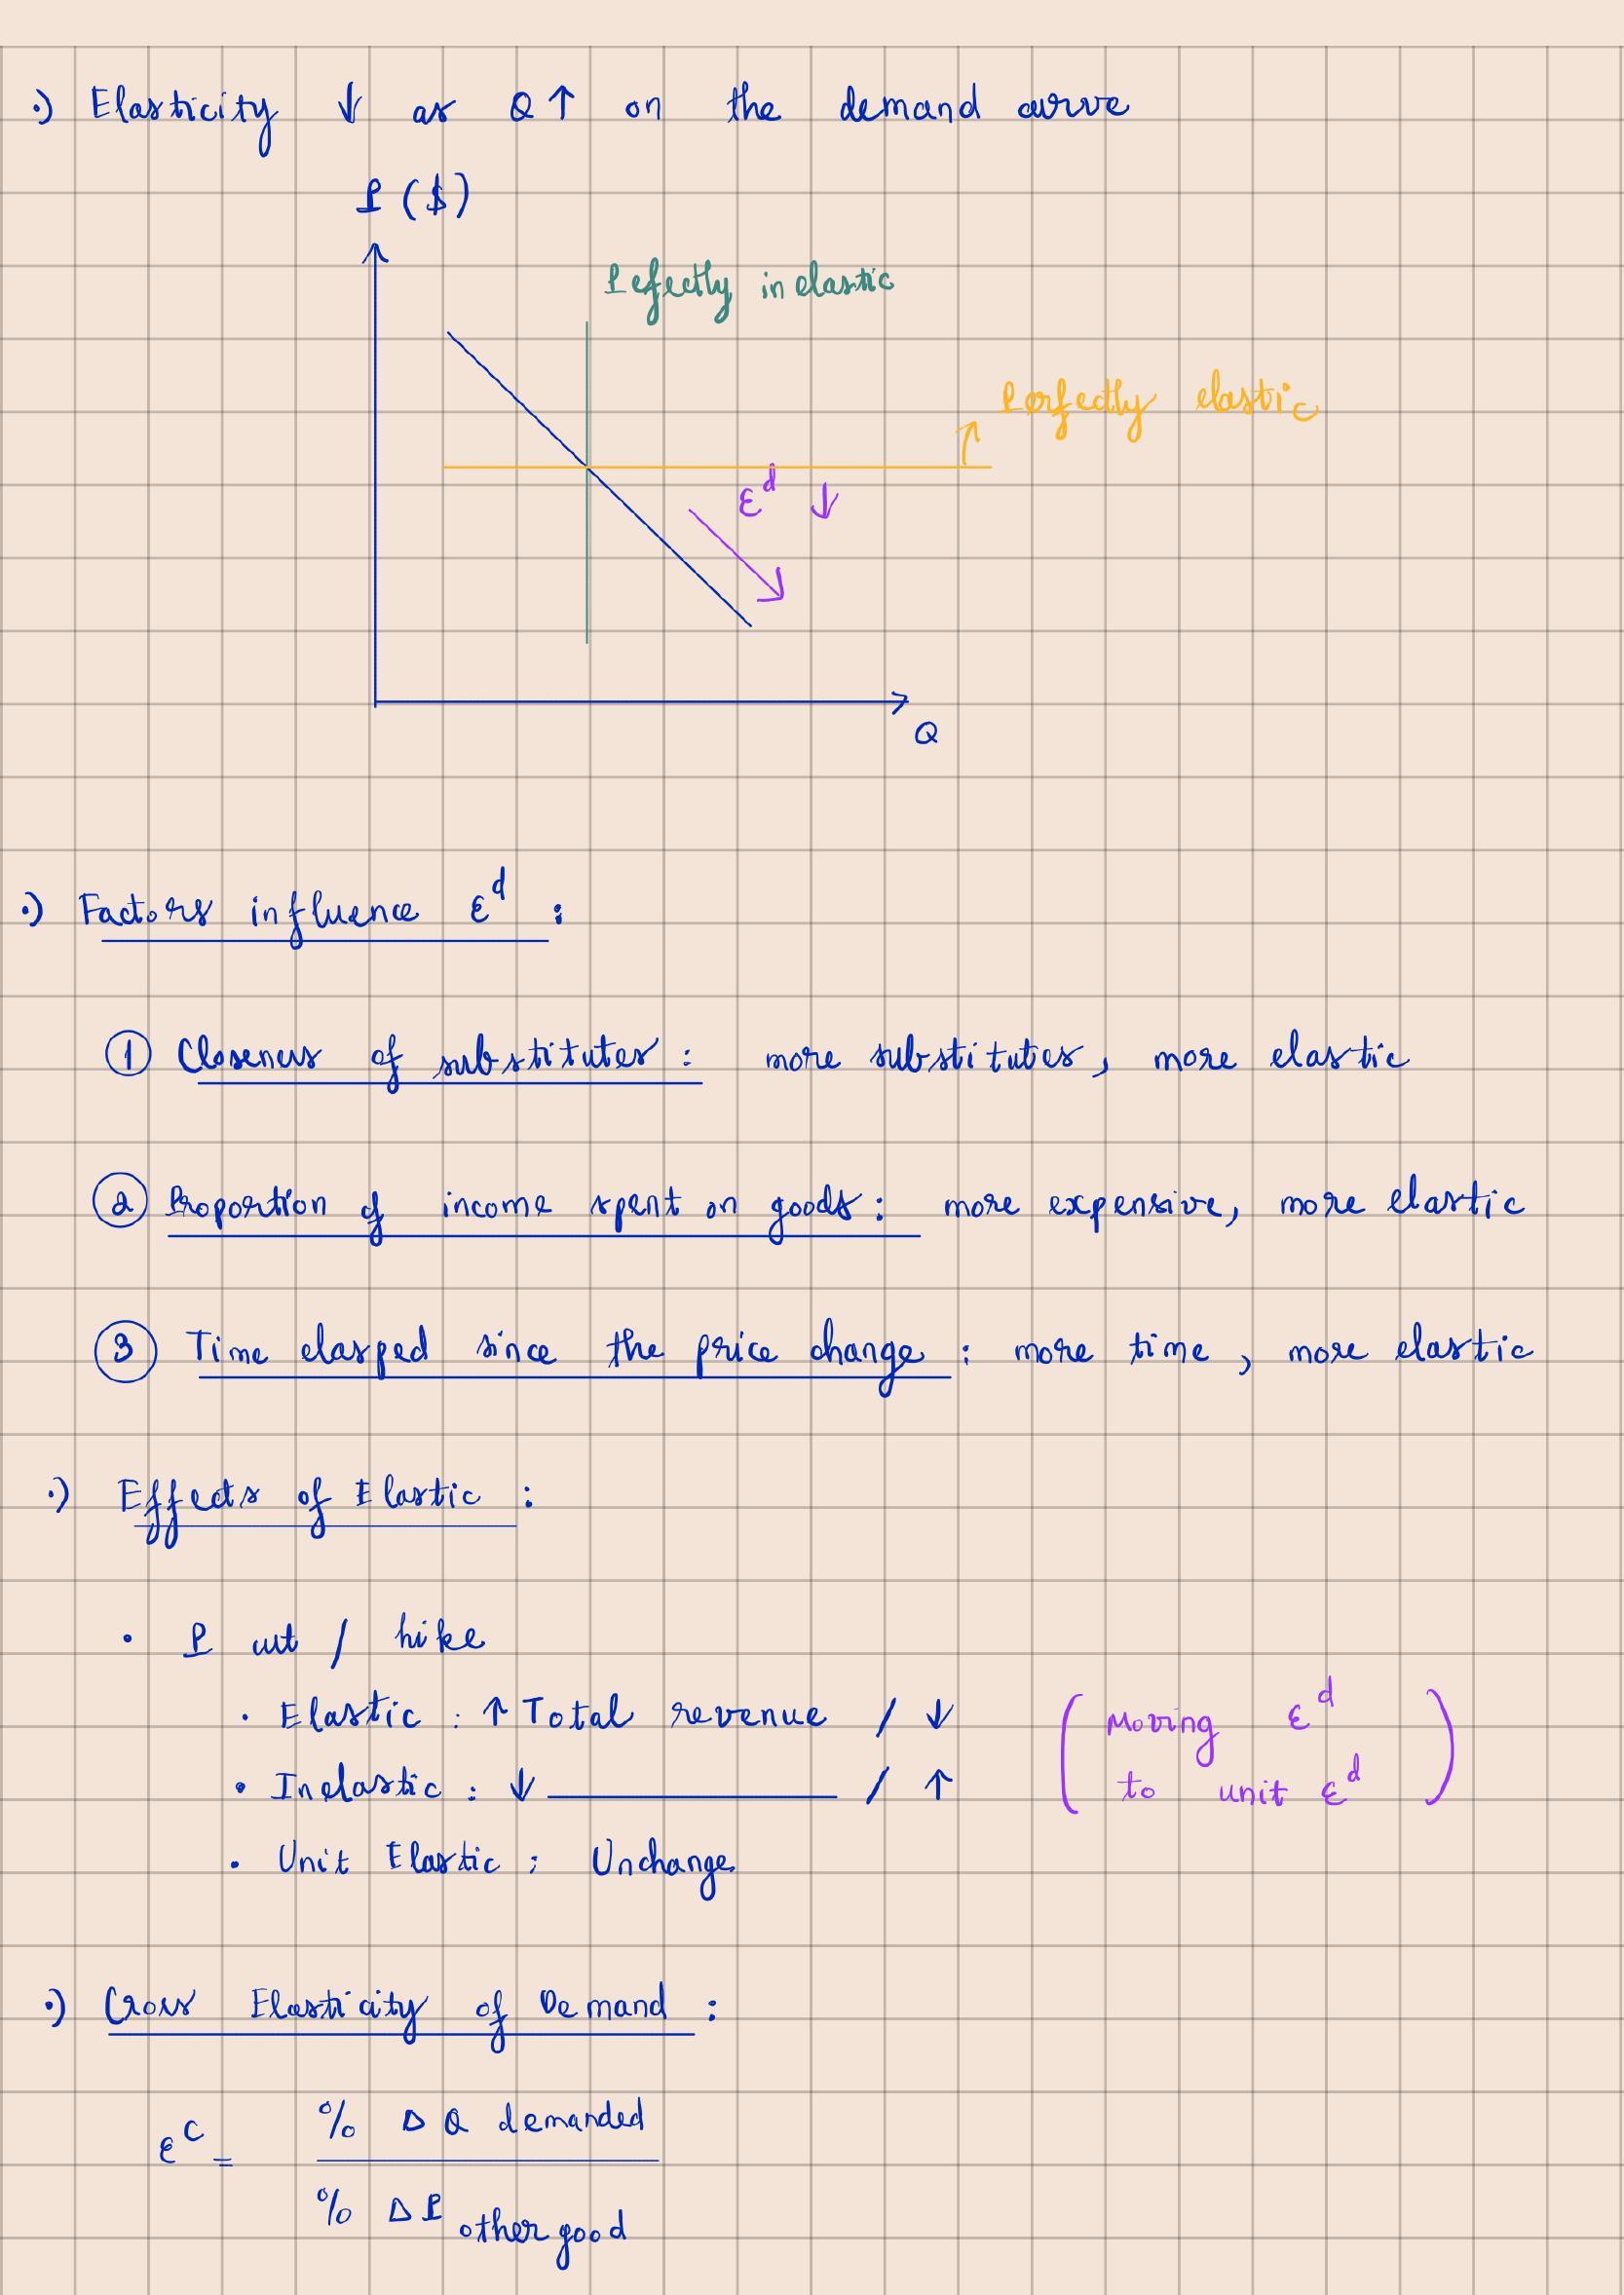 ·) Elasticity ↓ as Q↑ on the demand curve
P ($)
Pefectly inelastic
Perfectly elastic
εᵈ ↓
Q
·) Factors influence εᵈ :
① Closeness of substitutes : more substitutes, more elastic
② Proportion of income spent on goods : more expensive, more elastic
③ Time elasped since the price change : more time , more elastic
·) Effects of Elastic :
• P cut / hike
• Elastic : ↑ Total revenue / ↓
• Inelastic : ↓ ________ / ↑
(Moving εᵈ
to unit εᵈ)
• Unit Elastic : Unchange
·) Cross Elasticity of Demand :
εᶜ = % Δ Q demanded
% Δ P other good